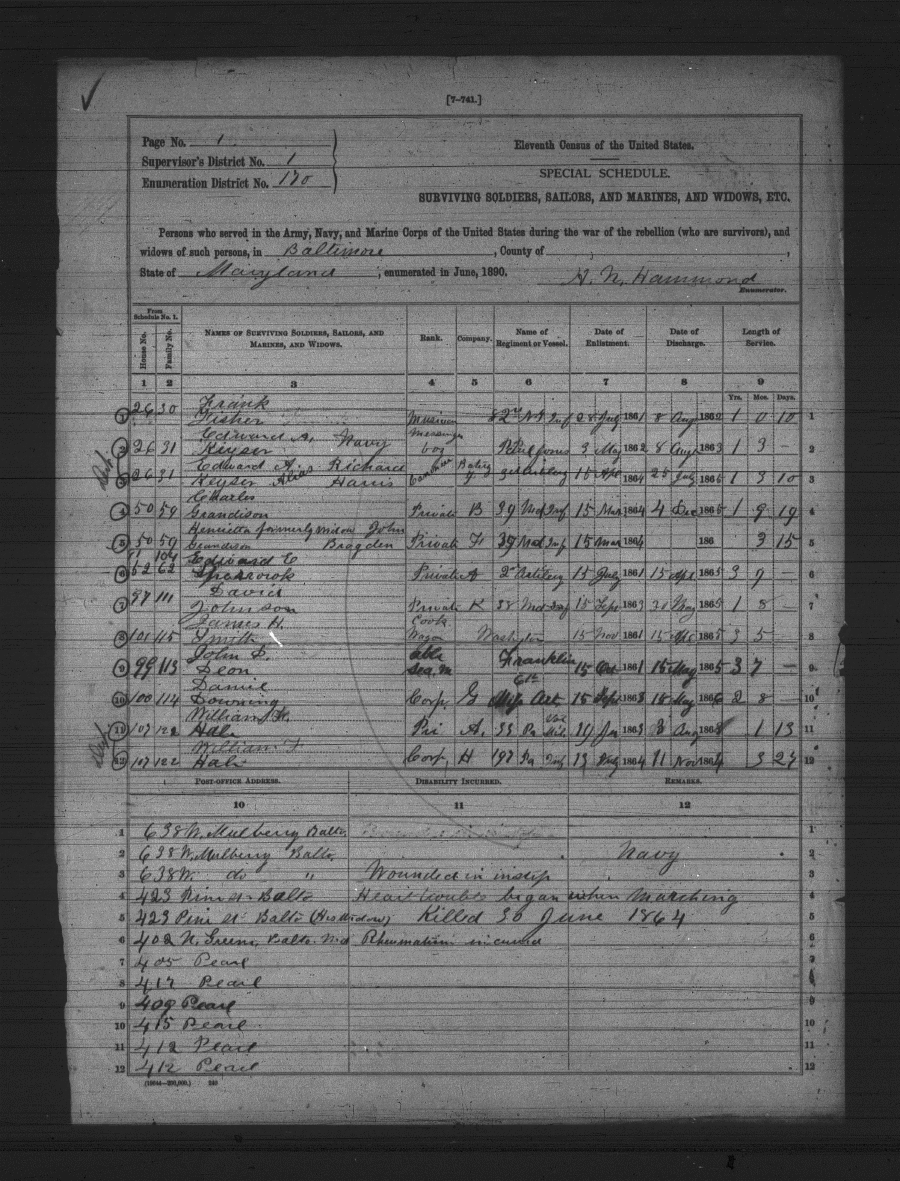 [7-741.]
Page No. 1
Supervisor's District No. 1
Enumeration District No. 170
Eleventh Census of the United States.
SPECIAL SCHEDULE.
SURVIVING SOLDIERS, SAILORS, AND MARINES, AND WIDOWS, ETC.
Persons who served in the Army, Navy, and Marine Corps of the United States during the war of the rebellion (who are survivors), and
widows of such persons, in Baltimore, County of ,
State of Maryland, enumerated in June, 1890.
H. N. Hammond
Enumerator.
From Schedule No. 1.
House No. Family No. NAMES OF SURVIVING SOLDIERS, SAILORS, AND MARINES, AND WIDOWS. Rank. Company. Name of Regiment or Vessel. Date of Enlistment. Date of Discharge. Length of Service.
1 2 3 4 5 6 7 8 9
Yrs. Mos. Days.
Frank
1 26 30 Fisher Musician 2nd Inf 28 July 1861 8 Aug 1862 1 0 10 1
Edward A. Navy Messenger
2 26 31 Keyser boy 3 May 1862 8 Aug 1863 1 3 2
Edward A. Richard Battery
3 26 31 Keyser Alias Harris 3 Artillery 15 Apr 1864 25 July 1865 1 3 10 3
Charles
4 50 59 Grandison Private B 39 Md Inf 15 Mar 1864 4 Dec 1865 1 9 19 4
Henrietta formerly widow John
5 50 59 Grandison Bragden Private F 39 Md Inf 15 Mar 1864 186 3 15 5
Edward E
6 52 62 Private A 2nd Artillery 15 July 1861 15 Apr 1865 3 9 – 6
David
7 87 111 Johnson Private K 38 Inf 15 Sept 1863 1865 1 8 – 7
James H. Cook
8 101 115 Smith Washington 15 Nov 1861 15 1865 3 5 – 8
John S. able
9 99 113 Deon Sea.m Franklin 15 Oct 1861 15 May 1865 3 7 – 9
6th
10 100 114 Downing Corp. G Art 15 Sept 1863 15 May 1866 2 8 – 10
William
11 107 122 Hall Pri A. 33 Pa Mil. 19 1863 8 Aug 1 13 11
William F.
12 107 122 Hall Corp. H 197 Pa Inf 13 July 1864 11 Nov 1864 3 27 12
POST-OFFICE ADDRESS. DISABILITY INCURRED. REMARKS.
10 11 12
1 638 W. Mulberry Balto. 1
2 638 W. Mulberry Balto. Navy 2
3 638 W. do " Wounded in instep 3
4 423 Pine st Balto Heart trouble began when marching 4
5 423 Pine st Balto (His Widow) Killed 30 June 1864 5
6 402 N. Greene, Balto. Md Rheumatism incurred 6
7 405 Pearl 7
8 417 Pearl 8
9 409 Pearl 9
10 415 Pearl 10
11 412 Pearl 11
12 412 Pearl 12